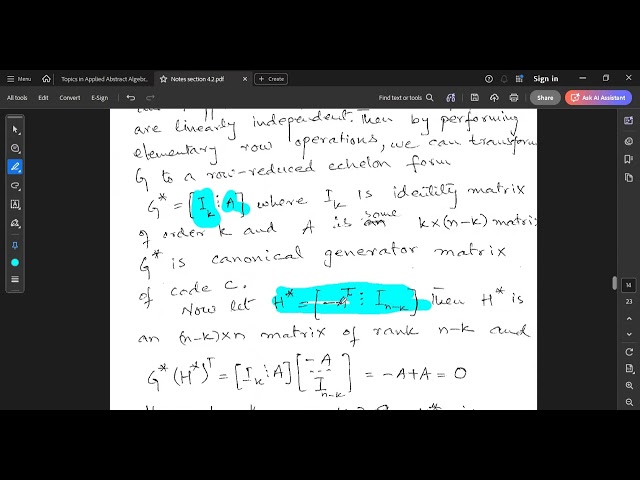 Topics in Applied Abstract Algebr...
Notes section 4.2.pdf
Create
Sign in
All tools
Edit
Convert
E-Sign
Find text or tools
Share
Ask AI Assistant
are linearly independent. Then by performing
elementary row operations, we can transform
G to a row-reduced echelon form
G* = [I_k ⋮ A] where I_k is identity matrix
of order k and A is some k×(n-k) matri
G* is canonical generator matrix
of code C.
Now let H* = [-A^T ⋮ I_{n-k}] Then H* is
an (n-k)×n matrix of rank n-k and
G*(H*)^T = [I_k ⋮ A] [-A --- I_{n-k}] = -A+A = 0
14
23